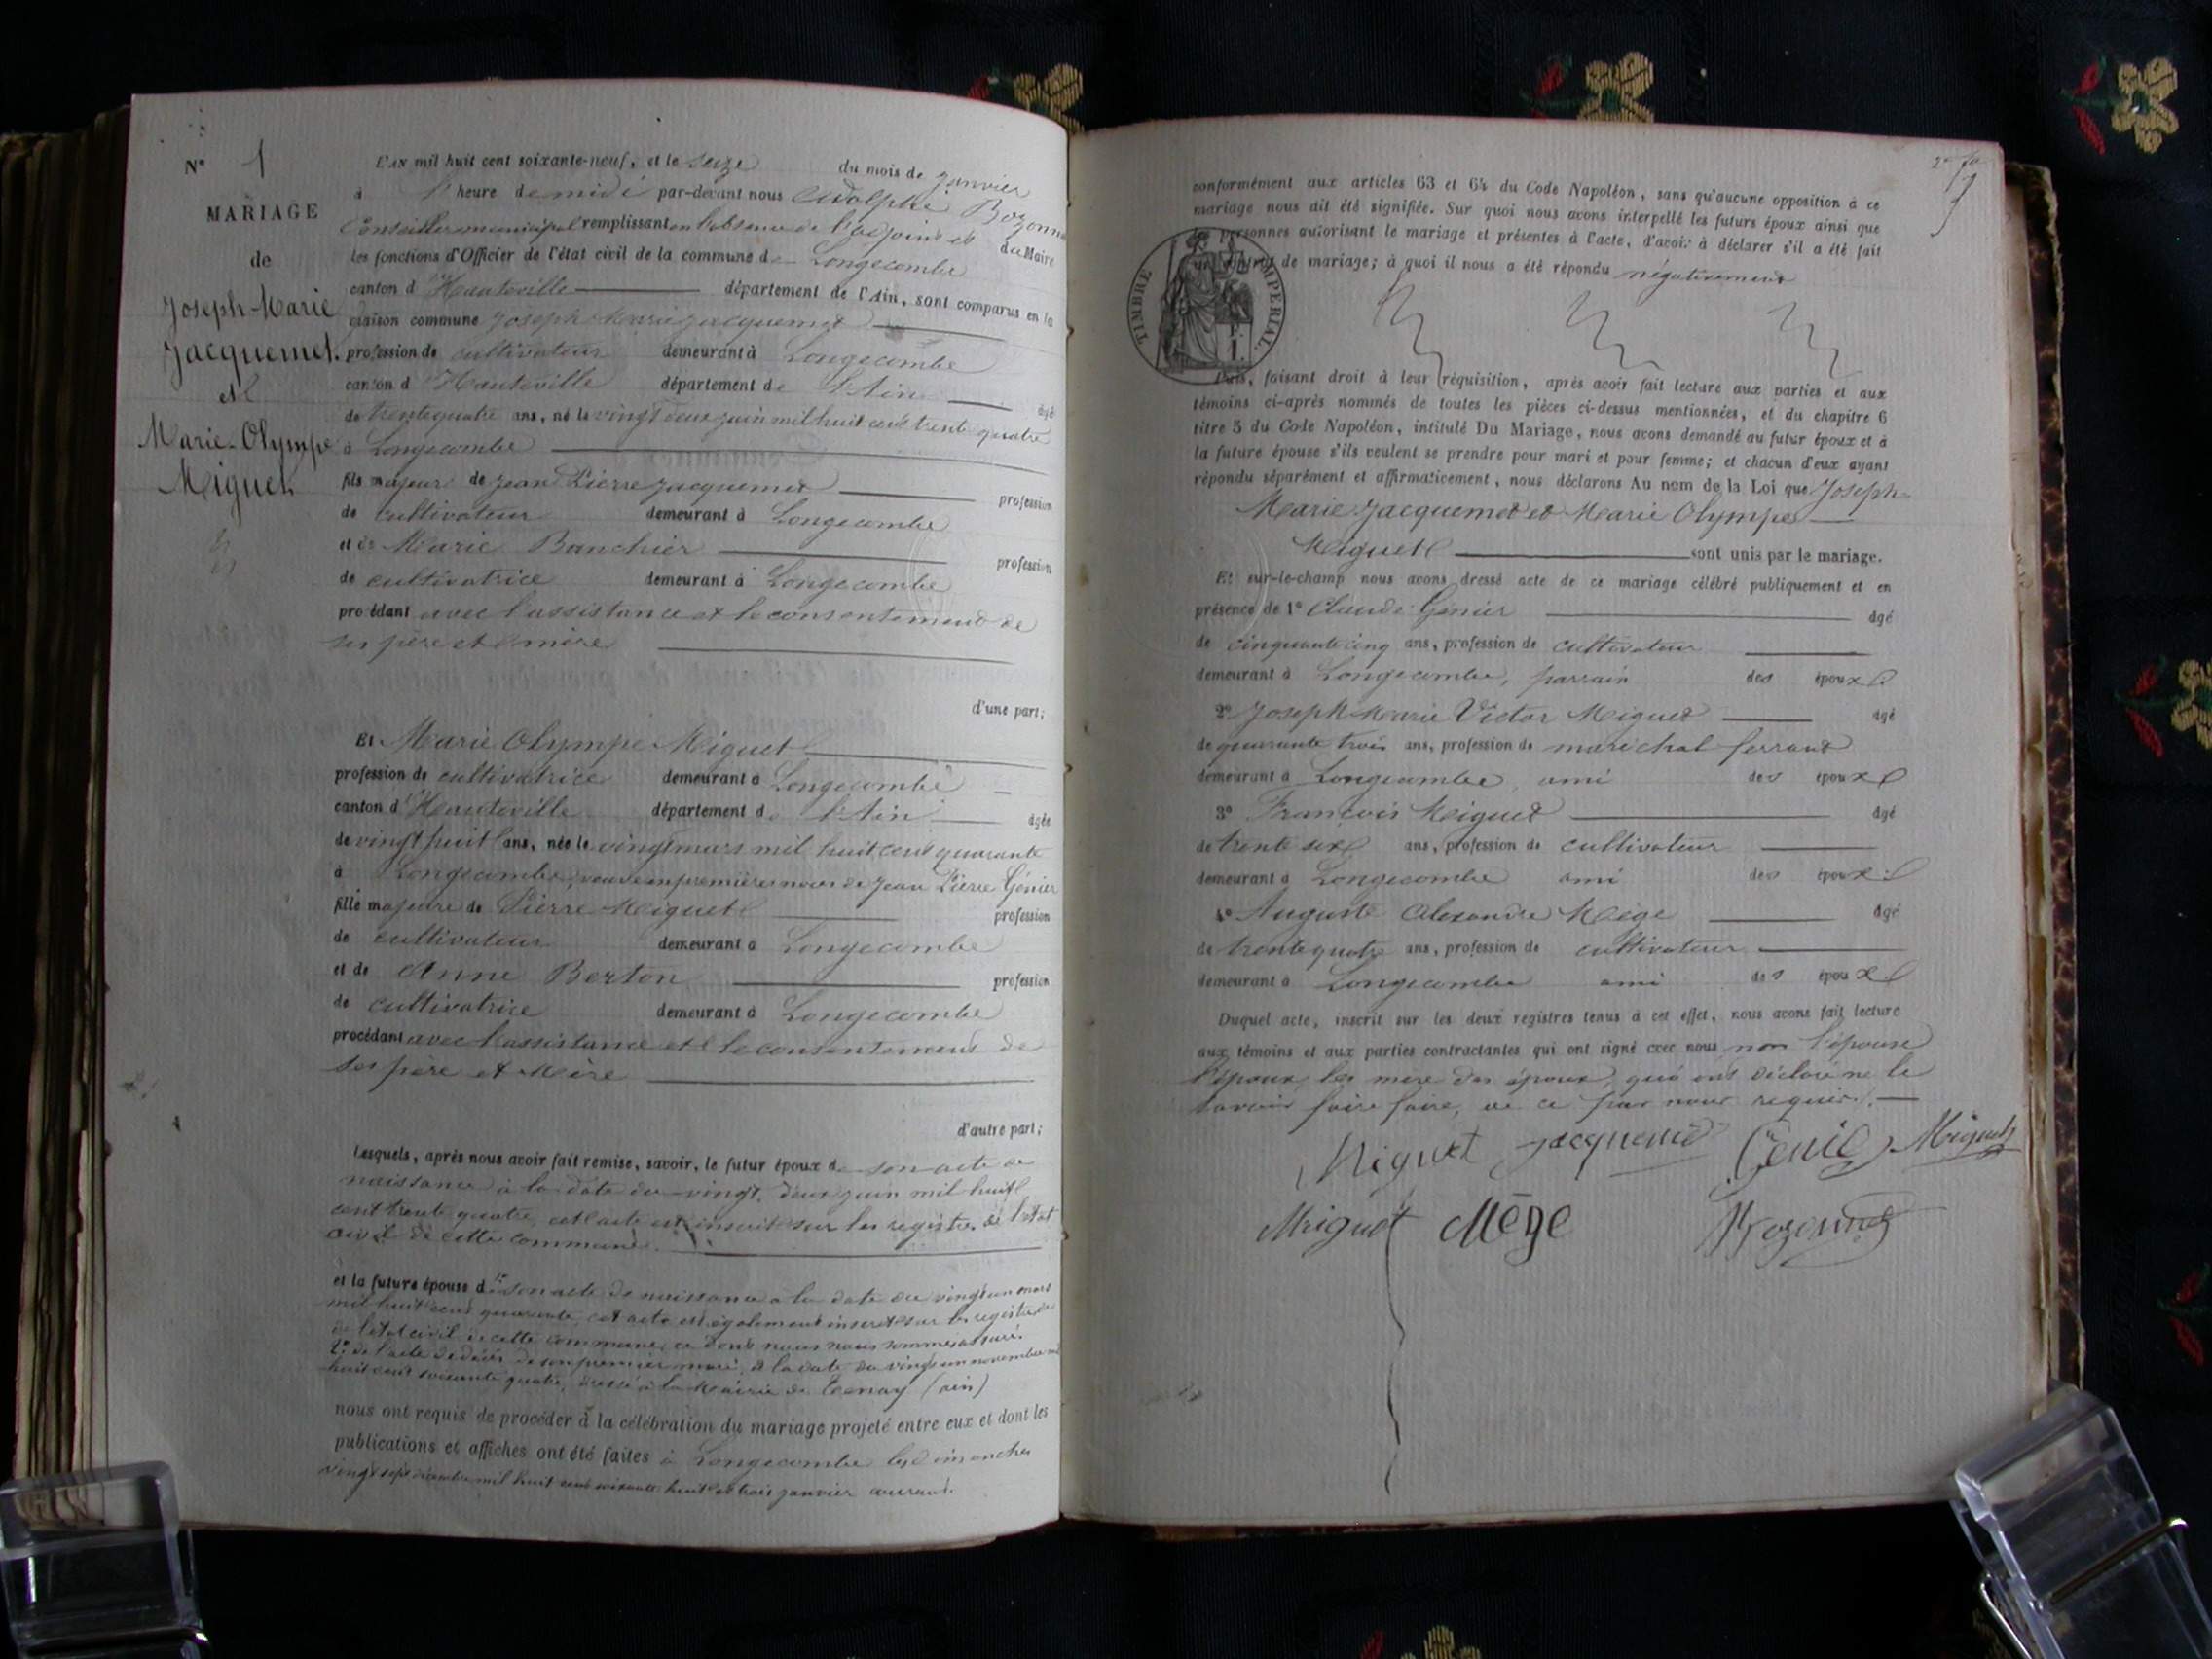 N° 1
MARIAGE
de
Joseph-Marie
Jacquemet
et
Marie-Olympe
Miguet
L'AN mil huit cent soixante-neuf, et le seize du mois de janvier
à heure de midi par-devant nous Adolphe Bozonnet
Conseiller municipal remplissant en l'absence de l'adjoint et du Maire
les fonctions d'Officier de l'état civil de la commune de Longecombe
canton d'Hauteville département de l'Ain, sont comparus en la
maison commune Joseph Marie Jacquemet
profession de cultivateur demeurant à Longecombe
canton d'Hauteville département de l'Ain âgé
de trente quatre ans, né le vingt deux juin mil huit cent trente quatre
à Longecombe
fils majeur de Jean Pierre Jacquemet profession
de cultivateur demeurant à Longecombe
et de Marie Banchier profession
de cultivatrice demeurant à Longecombe
procédant avec l'assistance et le consentement de
ses père et mère
d'une part;
Et Marie Olympe Miguet
profession de cultivatrice demeurant à Longecombe
canton d'Hauteville département de l'Ain âgée
de vingt huit ans, née le vingt mars mil huit cent quarante
à Longecombe, veuve en premières noces de Jean Pierre Génier
fille majeure de Pierre Miguet profession
de cultivateur demeurant à Longecombe
et de Anne Berton profession
de cultivatrice demeurant à Longecombe
procédant avec l'assistance et le consentement de
ses père et Mère
d'autre part;
Lesquels, après nous avoir fait remise, savoir, le futur époux de son acte de
naissance à la date du vingt deux juin mil huit
cent trente quatre, cet acte est inscrit sur les registres de l'état
civil de cette commune.
et la future épouse d 1° son acte de naissance a la date du vingt un mars
mil huit cent quarante, cet acte est également inscrit sur les registres
de l'état civil de cette commune, ce dont nous nous sommes assuré.
2° de l'acte de décès de son premier mari, à la date du vingt un novembre mil
huit cent soixante quatre, dressé à la Mairie de Tenay (ain)
nous ont requis de procéder à la célébration du mariage projeté entre eux et dont les
publications et affiches ont été faites à Longecombe les dimanches
vingt sept décembre mil huit cent soixante huit et trois janvier courant.
conformément aux articles 63 et 64 du Code Napoléon, sans qu'aucune opposition à ce
mariage nous ait été signifiée. Sur quoi nous avons interpellé les futurs époux ainsi que
personnes autorisant le mariage et présentes à l'acte, d'avoir à déclarer s'il a été fait
de mariage; à quoi il nous a été répondu négativement
TIMBRE IMPERIAL
1 F.
Puis, faisant droit à leur réquisition, après avoir fait lecture aux parties et aux
témoins ci-après nommés de toutes les pièces ci-dessus mentionnées, et du chapitre 6
titre 5 du Code Napoléon, intitulé Du Mariage, nous avons demandé au futur époux et à
la future épouse s'ils veulent se prendre pour mari et pour femme; et chacun d'eux ayant
répondu séparément et affirmativement, nous déclarons Au nom de la Loi que Joseph
Marie Jacquemet et Marie Olympe
Miguet sont unis par le mariage.
Et sur-le-champ nous avons dressé acte de ce mariage célébré publiquement et en
présence de 1° Claude Génier âgé
de cinquante cinq ans, profession de cultivateur
demeurant à Longecombe, parrain des époux
2° Joseph Marie Victor Miguet âgé
de quarante trois ans, profession de maréchal ferrant
demeurant à Longecombe, ami des époux
3° François Miguet âgé
de trente six ans, profession de cultivateur
demeurant à Longecombe ami des époux
4° Auguste Alexandre Mège âgé
de trente quatre ans, profession de cultivateur
demeurant à Longecombe ami des époux
Duquel acte, inscrit sur les deux registres tenus à cet effet, nous avons fait lecture
aux témoins et aux parties contractantes qui ont signé avec nous non l'épouse
l'époux, les mere des époux, qui ont déclaré ne le
savoir faire, de ce par nous requis.
Miguet Jacquemet Génie Miguet
Miguet Mège Bozonnet